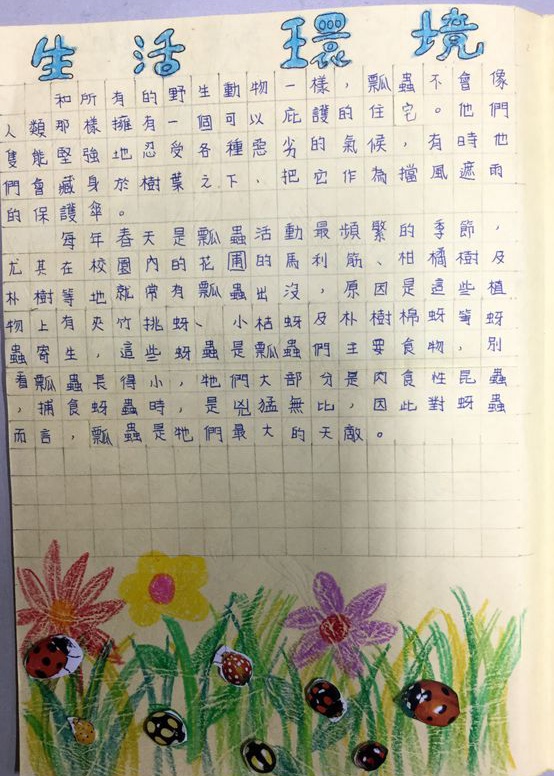 生活環境
和所有的野生動物一樣，瓢蟲不會像
人類那樣擁有一個可以庇護的住宅。他們
隻能堅強地忍受各種惡劣的氣候，有時他
們會藏身於樹葉之下、把它作為擋風遮雨
的保護傘。
每年春天是瓢蟲活動最頻繁的季節，
尤其在校園內的花圃的馬利筋、柑橘樹及
朴樹等地就常有瓢蟲出沒，原因是這些植
物上有夾竹挑蚜、小桔蚜及朴樹棉蚜等蚜
蟲寄生，這些蚜蟲是瓢蟲們主要食物，別
看瓢蟲長得小，牠們大部分是肉食性昆蟲
，捕食蚜蟲時，是兇猛無比，因此對蚜蟲
而言，瓢蟲是牠們最大的天敵。